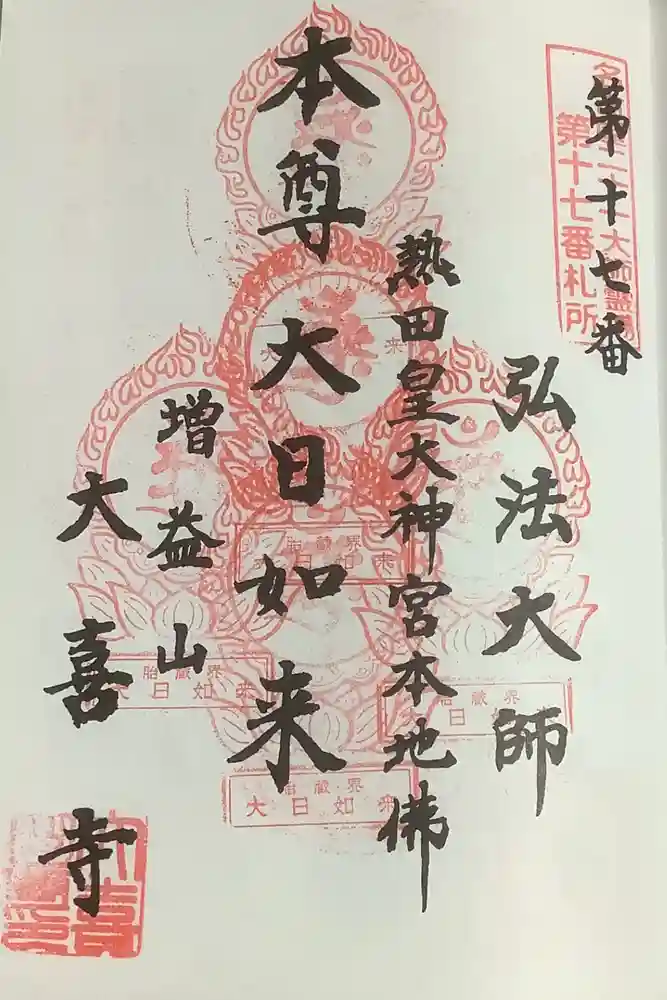 第十七番
名
大師霊場
第十七番札所
弘法大師
熱田皇大神宮本地佛
本尊大日如来
増益山
大喜寺
大 来
胎蔵界
大日如来
胎蔵界
大日如来
胎蔵界
大日
胎蔵界
大日如来